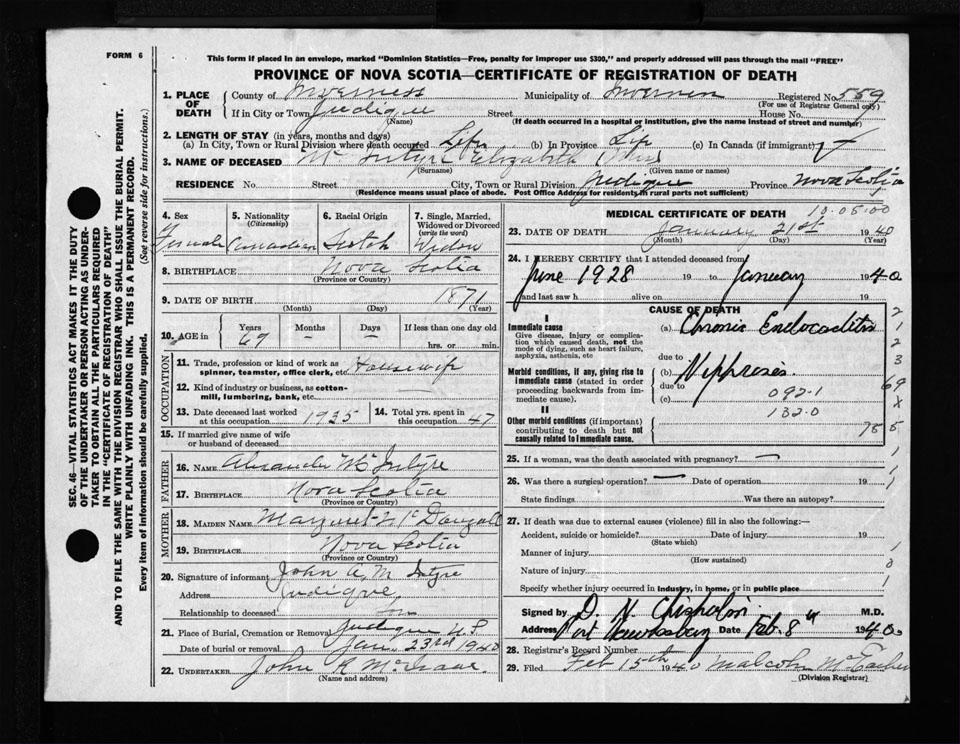 FORM 6
This form if placed in an envelope, marked "Dominion Statistics—Free, penalty for improper use $300," and properly addressed will pass through the mail "FREE"
PROVINCE OF NOVA SCOTIA—CERTIFICATE OF REGISTRATION OF DEATH
1. PLACE OF DEATH
County of Inverness Municipality of Registered No. 559
(For use of Registrar General only)
If in City or Town Judique Street House No.
(Name) (If death occurred in a hospital or institution, give the name instead of street and number)
2. LENGTH OF STAY (in years, months and days)
(a) In City, Town or Rural Division where death occurred Life (b) In Province Life (c) In Canada (if immigrant)
3. NAME OF DECEASED McIntyre Elizabeth (Mrs)
(Surname) (Given name or names)
RESIDENCE No. Street City, Town or Rural Division Judique Province Nova Scotia
(Residence means usual place of abode. Post Office Address for residents in rural parts not sufficient)
4. Sex Female
5. Nationality (Citizenship) Canadian
6. Racial Origin Scotch
7. Single, Married, Widowed or Divorced (write the word) Widow
8. BIRTHPLACE Nova Scotia
(Province or Country)
9. DATE OF BIRTH 1871
(Month) (Day) (Year)
10. AGE in Years Months Days If less than one day
69 – – hrs. or min.
OCCUPATION
11. Trade, profession or kind of work as spinner, teamster, office clerk, etc. Housewife
12. Kind of industry or business, as cotton-mill, lumbering, bank, etc.
13. Date deceased last worked at this occupation 1935
14. Total yrs. spent in this occupation 47
15. If married give name of wife or husband of deceased
FATHER
16. NAME Alexander McIntyre
17. BIRTHPLACE Nova Scotia
(Province or Country)
MOTHER
18. MAIDEN NAME Margaret McDougall
19. BIRTHPLACE Nova Scotia
(Province or Country)
20. Signature of informant John A. McIntyre
Address Judique
Relationship to deceased Son
21. Place of Burial, Cremation or Removal Judique N.S
Date of burial or removal Jan. 23rd 1940
22. UNDERTAKER John R McIsaac
(Name and address)
MEDICAL CERTIFICATE OF DEATH 10.05.00
23. DATE OF DEATH January 21st 1940
(Month) (Day) (Year)
24. I HEREBY CERTIFY that I attended deceased from
June 1928 19 to January 1940
and last saw h alive on 19
CAUSE OF DEATH
I
Immediate cause (a) Chronic Endocarditis
Give disease, injury or complication which caused death, not the mode of dying, such as heart failure, asphyxia, asthenia, etc
due to
Morbid conditions, if any, giving rise to immediate cause (stated in order proceeding backwards from immediate cause).
(b) Nephrosis
due to
(c) 092-1
132.0
II
Other morbid conditions (if important) contributing to death but not causally related to immediate cause.
2
1
2
3
69
X
78 5
25. If a woman, was the death associated with pregnancy? —
26. Was there a surgical operation? — Date of operation 19
State findings Was there an autopsy?
27. If death was due to external causes (violence) fill in also the following:—
Accident, suicide or homicide? Date of injury 19
(State which)
Manner of injury
(How sustained)
Nature of injury
Specify whether injury occurred in industry, in home, or in public place
Signed by D. N. Chisholm M.D.
Address Port Hawkesbury Date Feb. 8" 1940
28. Registrar's Record Number
29. Filed Feb 15th 1940 Malcolm
(Division Registrar)
SEC. 46—VITAL STATISTICS ACT MAKES IT THE DUTY
OF THE UNDERTAKER OR PERSON ACTING AS UNDER-
TAKER TO OBTAIN ALL THE PARTICULARS REQUIRED
IN THE "CERTIFICATE OF REGISTRATION OF DEATH"
AND TO FILE THE SAME WITH THE DIVISION REGISTRAR WHO SHALL ISSUE THE BURIAL PERMIT.
WRITE PLAINLY WITH UNFADING INK. THIS IS A PERMANENT RECORD.
Every item of information should be carefully supplied. (See reverse side for instructions.)